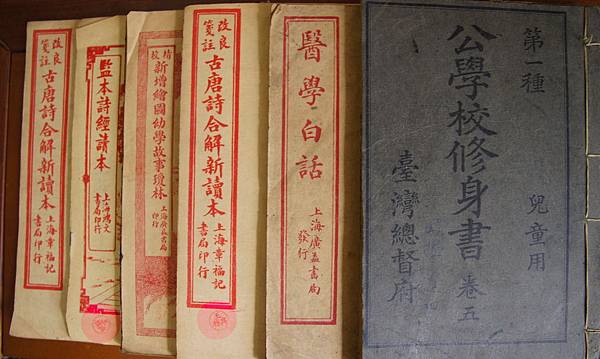 改良
箋註
古唐詩合解新讀本
上海章福記
書局印行
監本詩經讀本
上海鴻文
書局印行
精校
新增繪圖幼學故事瓊林
上海廣益書局
印行
改良
箋註
古唐詩合解新讀本
上海章福記
書局印行
醫學白話
上海廣益書局
發行
第一種
兒童用
公學校修身書 卷五
臺灣總督府